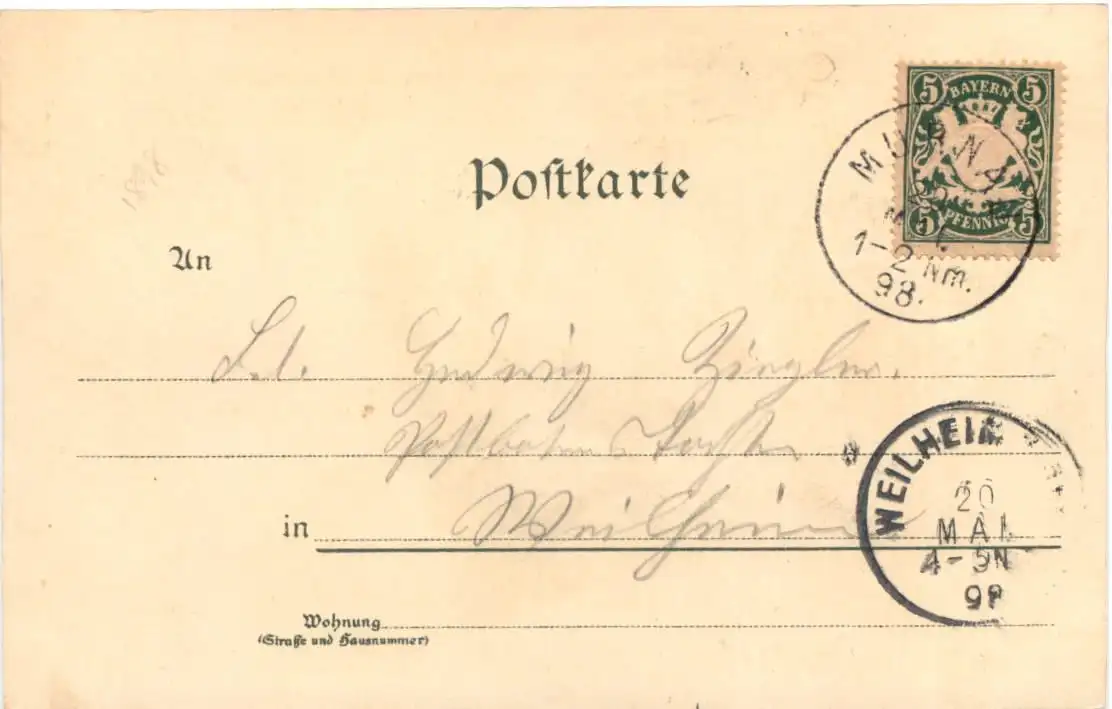 5 BAYERN 5
5 PFENNIG 5
MURNAU
20
MAI
1-2 Nm.
98.
1898
Postkarte
An
Frl. Hedwig Ziegler.
Postboten Tochter
in Weilheim
WEILHEIM
20
MAI
4-5N
98
Wohnung
(Straße und Hausnummer)